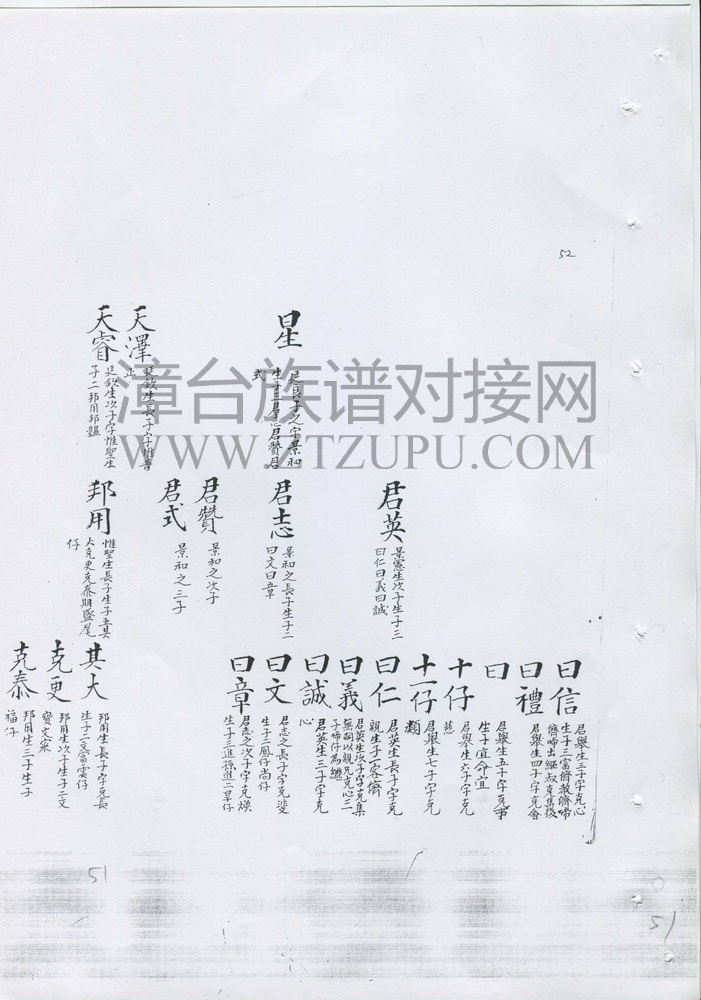 52
星
廷良子之字景和
生子三君志君贊君
式
天澤
廷欽生長子字惟普
正
天睿
廷欽生次子字惟聖生
子二邦用邦韞
漳台族谱对接网
WWW.ZTZUPU.COM
君英
景憲生次子生子三
曰仁曰義曰誠
君志
景和之長子生子二
曰文曰章
君贊
景和之次子
君式
景和之三子
邦用
惟聖生長子生子五其
大克更克泰期盛尾
仔
曰信
君舉生三子字克心
生子三富儕教儕啼
儕啼出繼叔克集後
曰禮
君舉生四子字克會
曰
君舉生五子字克事
生子宜命宜
十仔
君舉生六子字克
慈
十一仔
君舉生七子字克
類
曰仁
君英生長子字克
親生子一容儕
曰義
君英生次子字克集
無嗣以親兄克心三
子啼仔為繼
曰誠
君英生三子字克
心
曰文
君志之長子字克斐
生子二鳳仔尚仔
曰章
君志之次子字克煥
生子三進孫進二旱仔
其大
邦用生長子字克長
生子二文富雲仔
克更
邦用生次子生子二文
寶文案
克泰
邦用生三子生子
福仔
51
51